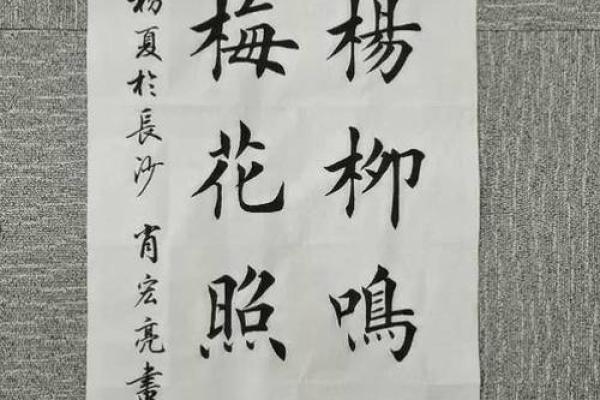 楊柳鳴
梅花照
初夏於長沙 肖宏亮書